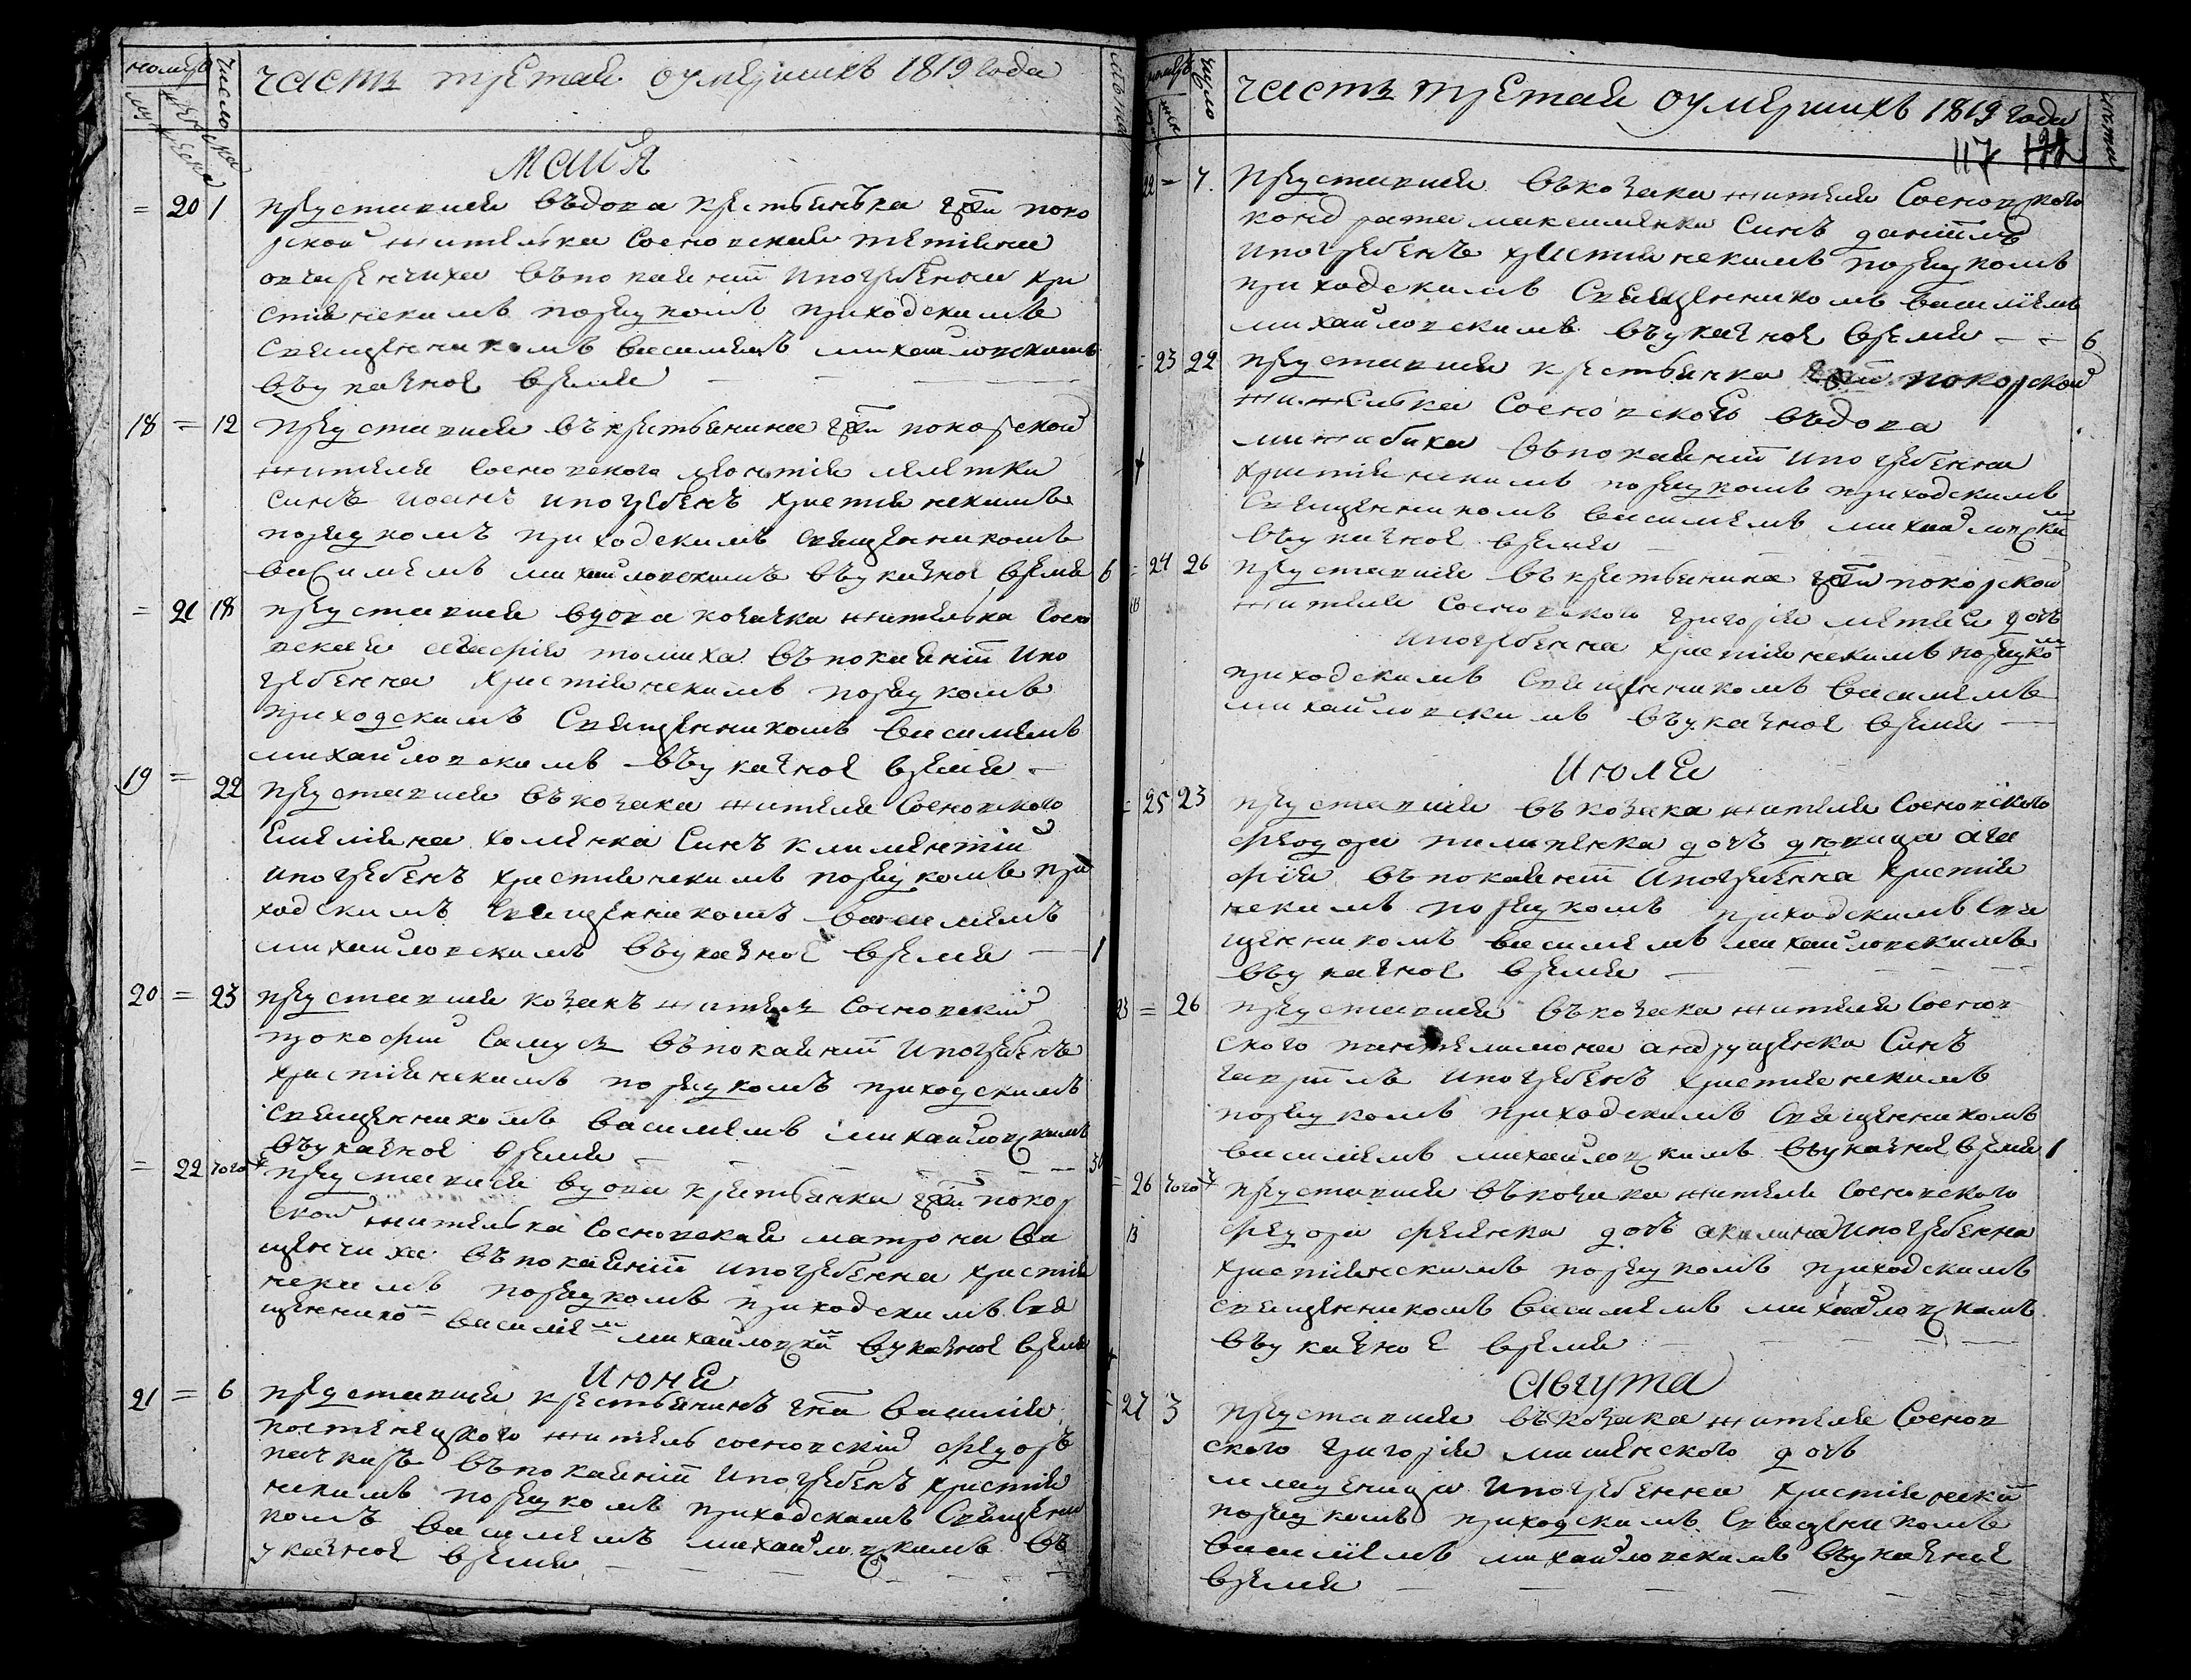 часть третая оумершихъ 1819 года
число
Маия
= 20 1 преставися въдова крестьянъка гр̃жи поко
рской жителька Сосновская тетiяна
овчаренчиха въпокаянiи ипогребенна хри
стiянскимъ порядкомъ приходскимъ
Священникомъ василиемъ михайловскимъ
въуказное время
18 = 12 преставися въкрестьянина гр̃жи покорской
жителя Сосновского леонтiя
синъ иоанъ ипогребенъ христiянскимъ
порядкомъ приходскимъ священникомъ
василиемъ михайловскимъ въуказное время 6
= 21 18 преставися вдова козачка жителька Сосно
вская агафiя томиха въпокаянiи ипо
гребенна христiянскимъ порядкомъ
приходскимъ Священникомъ василиемъ
михайловскимъ въуказное время
19 = 22 преставися въкозака жителя Сосновского
емелiяна хоменка Синъ климентiй
ипогребенъ христiянскимъ порядкомъ при
ходскимъ Священникомъ василиемъ
михайловскимъ въуказное время 1
20 = 23 преставися козакъ житель Сосновскiй
прокофий Самусь въпокаянiи ипогребенъ
христiянскимъ порядкомъ приходскимъ
священникомъ василиемъ михайловскимъ
въуказное время
= 22 тогоч преставися вдова крестьянка гр̃жи покор
ской жителька Сосновская матрона ва
щенчиха въпокаянiи ипогребенна христiя
нскимъ порядкомъ приходскимъ Свя
щеннико василие михайловски вуказное время
Июня
21 = 6 преставися крестьянинъ василия
житель сосновскiй федоръ
въпокаянiи ипогребенъ христiя
нскимъ порядкомъ приходскимъ Священни
комъ василиемъ михайловскимъ въ
указное время
часть третая оумершихъ 1819 года
117
число лѣта
22 = 7. преставися въкозака жителя Сосновского
кондрата максименка Синъ данiилъ
ипогребенъ христiянскимъ порядкомъ
приходскимъ Священникомъ василиемъ
михайловскимъ въуказное время 6
= 23 22 преставися крестьянка гр̃жи покорской
жителька Сосновского въдова
въпокаянiи ипогребенна
христiянскимъ порядкомъ приходскимъ
Священникомъ василиемъ михайловски
въуказное время
= 24 26 преставися въкрестьянина гр̃жи покорской
жителя Сосновского григорiя дочъ
ипогребенна христiянскимъ порядко
приходскимъ Священникомъ василиемъ
михайловскимъ въуказное время
Июля
= 25 23 преставися въкозака жителя Сосновского
феодора пилипенка дочъ дѣвица ага
фiя въпокаянiи ипогребенна христiя
нскимъ порядкомъ приходскимъ Свя
щенникомъ василиемъ михайловскимъ
въуказное время
23 = 26 преставися въкозака жителя Соснов
ского пантелимона андрущенка Синъ
гаврiилъ ипогребенъ христiянскимъ
порядкомъ приходскимъ Священникомъ
василиемъ михайловскимъ въуказное время 1
= 26 тогоч преставися въкозака жителя Сосновского
федора феленка дочъ акилина ипогребенна
христiянскимъ порядкомъ приходскимъ
священникомъ василиемъ михайловскимъ
въуказное время
Августа
= 27 3 преставися въкозака жителя Соснов
ского григорiя мишенского дочъ
младеница ипогребенна христiянски
порядкомъ приходскимъ Священикомъ
василиемъ михайловскимъ въуказное
время